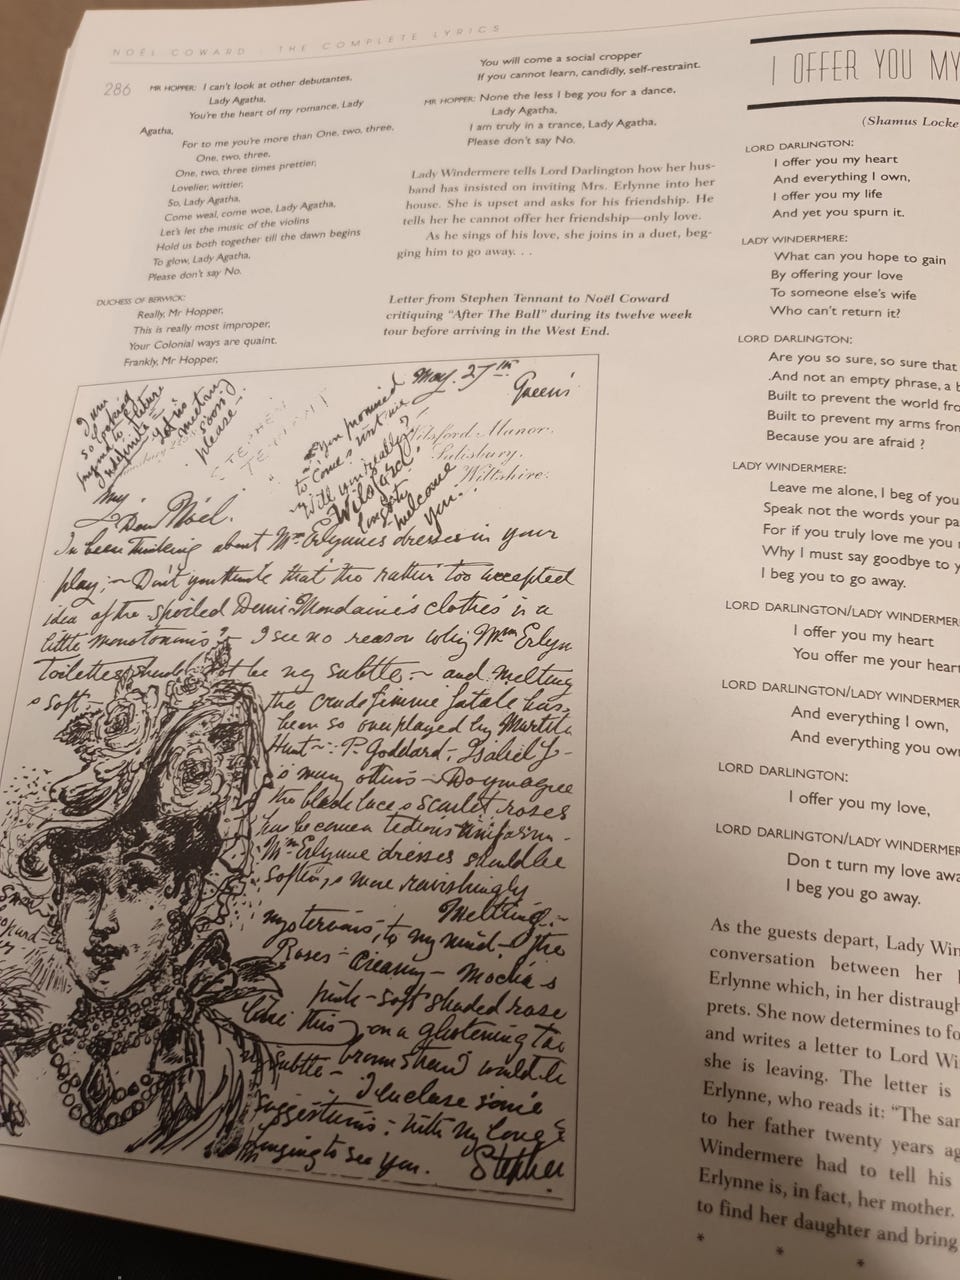 NOËL COWARD · THE COMPLETE LYRICS
286
MR HOPPER: I can't look at other debutantes,
Lady Agatha,
You're the heart of my romance, Lady
Agatha,
For to me you're more than One, two, three,
One, two, three,
One, two, three times prettier,
Lovelier, wittier,
So, Lady Agatha,
Come weal, come woe, Lady Agatha,
Let's let the music of the violins
Hold us both together till the dawn begins
To glow, Lady Agatha,
Please don't say No.
DUCHESS OF BERWICK:
Really, Mr Hopper,
This is really most improper,
Your Colonial ways are quaint.
Frankly, Mr Hopper,
You will come a social cropper
If you cannot learn, candidly, self-restraint.
MR HOPPER: None the less I beg you for a dance,
Lady Agatha,
I am truly in a trance, Lady Agatha,
Please don't say No.
Lady Windermere tells Lord Darlington how her hus-
band has insisted on inviting Mrs. Erlynne into her
house. She is upset and asks for his friendship. He
tells her he cannot offer her friendship—only love.
As he sings of his love, she joins in a duet, beg-
ging him to go away. . .
Letter from Stephen Tennant to Noël Coward
critiquing "After The Ball" during its twelve week
tour before arriving in the West End.
May. 27th
I am
so looking
forward to
let us
meeting
soon
please
STEPHEN
TENNANT
You promised
to come
Wilsford
welcome
you.
Wilsford Manor.
Salisbury.
Wiltshire.
My.
Dear Noël.
I've been thinking about Mrs Erlynnes dresses in your
play; ~ Don't you think that the rather too accepted
idea of the spoiled Demi Mondaine's clothes is a
little monotonous? ~ I see no reason why Mrs Erlyn
toilettes should not be ng subtle. ~ and melting
s soft.
the crude femme fatale has
been so overplayed by Martita
Hunt ~ P. Goddard, ~ Isabel J-
s many others ~
the black lace s scarlet roses
has become a tedious uniform.
Mrs Erlynne dresses should be
softer, s more ravishingly
Melting. ~
mysterious, to my mind. ~ The
Roses - creamy - mocha s
pink - soft shaded rose
like this on a glistening
Subtle - brown would be
I enclose some
suggestions; with my love &
longing to see you.
Stephen
I OFFER YOU MY
(Shamus Locke
LORD DARLINGTON:
I offer you my heart
And everything I own,
I offer you my life
And yet you spurn it.
LADY WINDERMERE:
What can you hope to gain
By offering your love
To someone else's wife
Who can't return it?
LORD DARLINGTON:
Are you so sure, so sure that
And not an empty phrase, a b
Built to prevent the world fro
Built to prevent my arms from
Because you are afraid ?
LADY WINDERMERE:
Leave me alone, I beg of you
Speak not the words your pa
For if you truly love me you
Why I must say goodbye to y
I beg you to go away.
LORD DARLINGTON/LADY WINDERMER
I offer you my heart
You offer me your heart
LORD DARLINGTON/LADY WINDERMER
And everything I own,
And everything you own
LORD DARLINGTON:
I offer you my love,
LORD DARLINGTON/LADY WINDERMER
Don t turn my love awa
I beg you go away.
As the guests depart, Lady Win
conversation between her
Erlynne which, in her distraugh
prets. She now determines to fo
and writes a letter to Lord Wi
she is leaving. The letter is
Erlynne, who reads it: "The sam
to her father twenty years ag
Windermere had to tell his
Erlynne is, in fact, her mother.
to find her daughter and bring
* * *